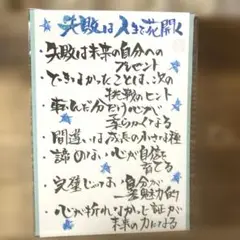 失敗は人生で花開く
・失敗は未来の自分への
プレゼント
・できなかったことは、次の
挑戦のヒント
・転んだ分だけ心が
柔らかくなる
・間違いは成長の小さな種
・諦めない心が自信を
育てる
・完璧じゃない自分が
一番魅力的
・心が折れなかった証が
未来の力になる